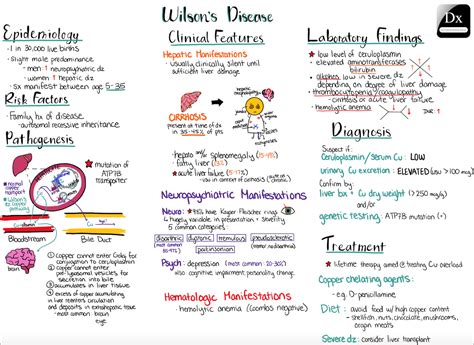 Wilson's Disease
Dx
Epidemiology
- 1 in 30,000 live births
- Slight male predominance
- men ↑ neuropsychiatric dz
- women ↑ hepatic dz
- Sx manifest between age 5-35
Risk Factors
- Family hx of disease
- autosomal recessive inheritance
Pathogenesis
★ mutation of
ATP7B
transporter
normal
copper
pathway
Wilson's
dz copper
pathway
Cu
Cu
Bloodstream
Bile Duct
① copper cannot enter Golgi for
conjugation to ceruloplasmin
② copper cannot enter
vesicles, for
secretion into bile
③ accumulates in liver tissue
④ excess of copper accumulating
in liver reenters circulation
and deposits in extrahepatic tissue
- most common: brain
eye
Clinical Features
Hepatic Manifestations
- usually clinically silent until
sufficient liver damage
CIRRHOSIS
present at time of dx
in 35-45% of pts
- hepato and/or splenomegaly
- fatty liver
★ acute liver failure
Neuropsychiatric Manifestations
Neuro: ★ 98% have Kayser Fleischer rings
↳ hugely variable in presentation + severity
5 common categories:
dysarthric
dystonic
tremulous
pseudosclerotic
parkinsonism
Psych: depression (most common, 20-30%)
also cognitive impairment, personality change
Hematologic Manifestations
- hemolytic anemia (coombs negative)
Laboratory Findings
★ low level of ceruloplasmin
- elevated aminotransferases
bilirubin
- alkphos low in severe dz
depending on degree of liver damage
- thrombocytopenia/coagulopathy
- cirrhosis or acute liver failure
- hemolytic anemia
Diagnosis
Suspect if:
Ceruloplasmin/Serum Cu: LOW
urinary Cu excretion: ELEVATED (also >100 mcg)
Confirm by:
liver bx: Cu dry weight (>250 mcg/g)
and/or
genetic testing: ATP7B mutation (+)
Treatment
★ lifetime therapy aimed @ treating Cu overload
Copper chelating agents:
- e.g. D-penicillamine
Diet: avoid food w/ high copper content
- shellfish, nuts, chocolate, mushrooms,
organ meats
Severe dz: consider liver transplant